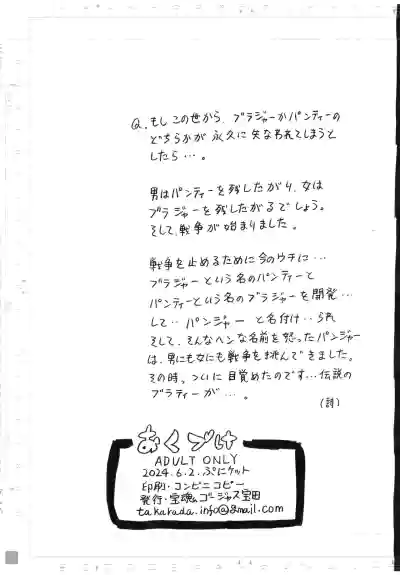 Q. もしこの世から、ブラジャーかパンティーの
どちらかが永久に失なわれてしまうと
したら…。
男はパンティーを残したがり、女は
ブラジャーを残したがるでしょう。
そして、戦争が始まりました。
戦争を止めるために今のウチに…
ブラジャーという名のパンティーと
パンティーという名のブラジャーを開発…
して‥パンジャーと名付け…られ
そして、そんなヘンな名前を怒ったパンジャー
は、男にも女にも戦争を挑んできました。
その時。ついに目覚めたのです…伝説の
ブラティーが…。
(詩)
おくづけ
ADULT ONLY
2024.6.2.ぷにケット
印刷・コンビニコピー
発行・宝魂ゴージャス宝田
takarada.info@gmail.com